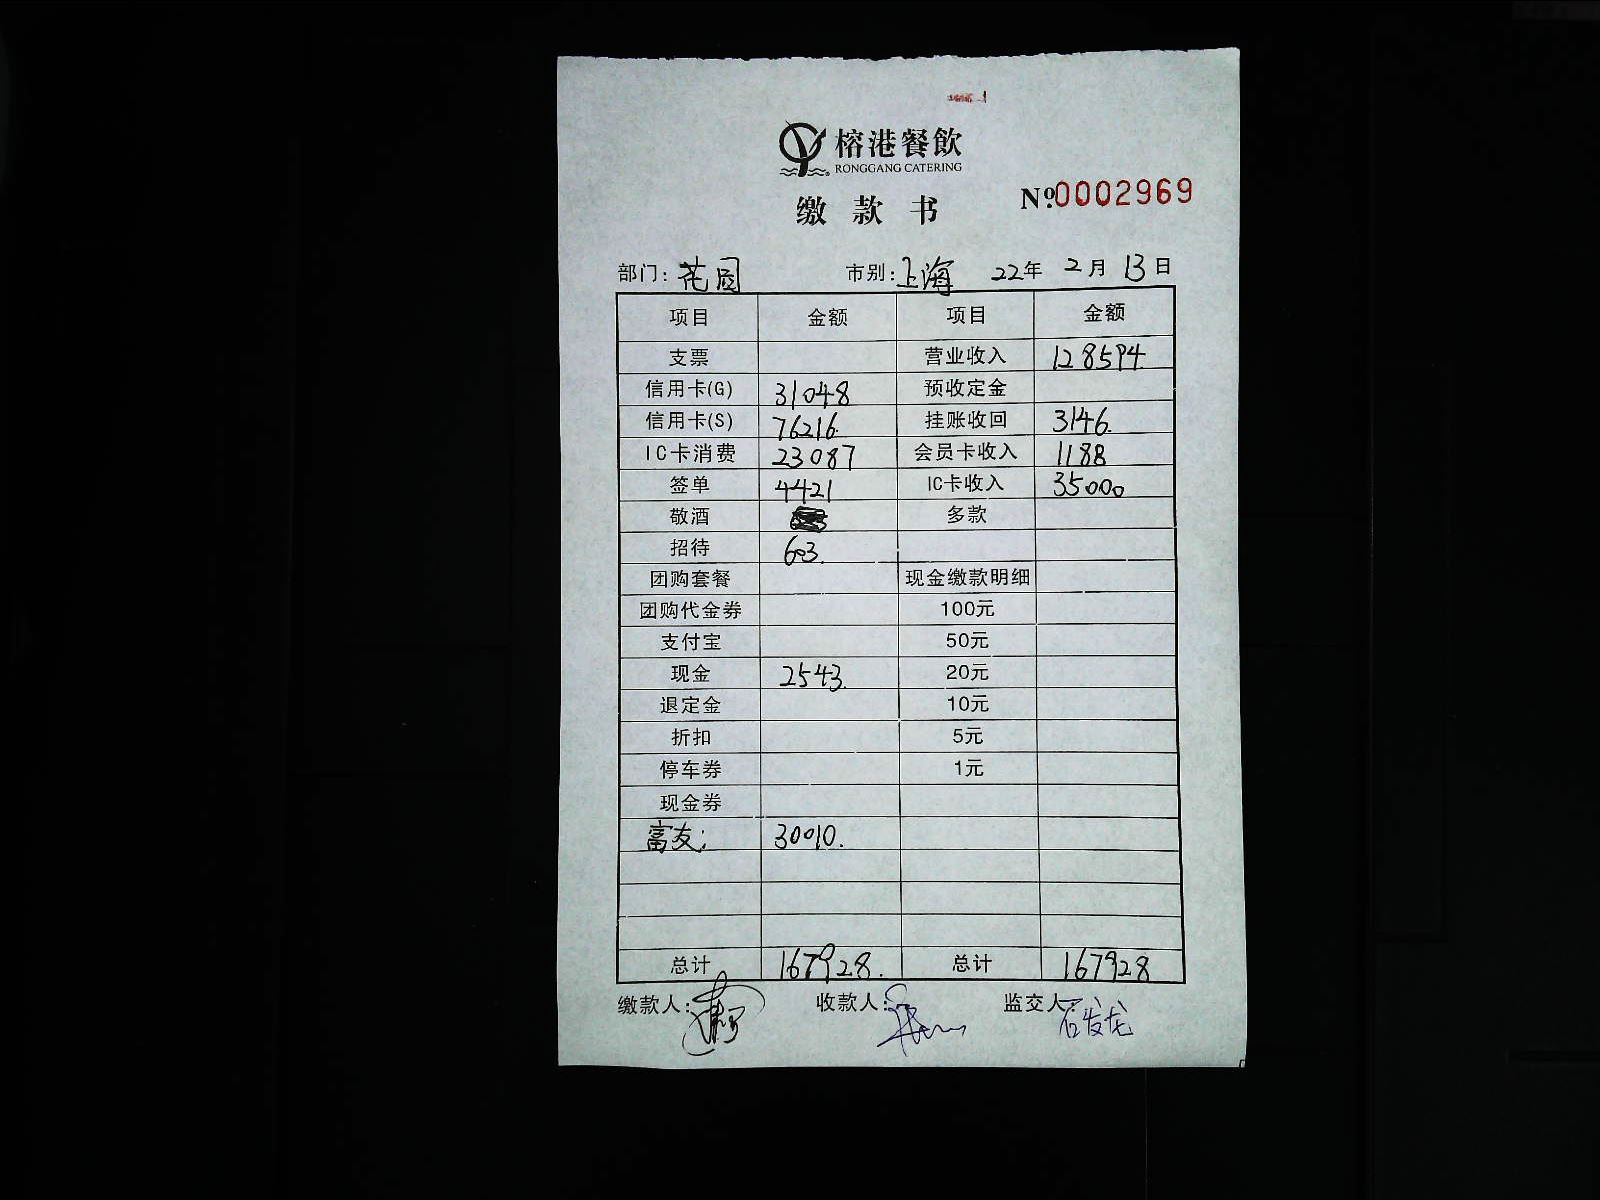 榕港餐飲
RONGGANG CATERING
缴款书 Nº.0002969
部门：花园 市别：上海 22年 2月 13日
项目 金额 项目 金额
支票 营业收入 128594
信用卡(G) 31048 预收定金
信用卡(S) 76216. 挂账收回 3146.
IC卡消费 23087 会员卡收入 1188
签单 4421 IC卡收入 35000
敬酒 多款
招待 603.
团购套餐 现金缴款明细
团购代金券 100元
支付宝 50元
现金 2543. 20元
退定金 10元
折扣 5元
停车券 1元
现金券
富友： 30010.
总计 167928. 总计 167928
缴款人： 收款人： 监交人： 石发龙